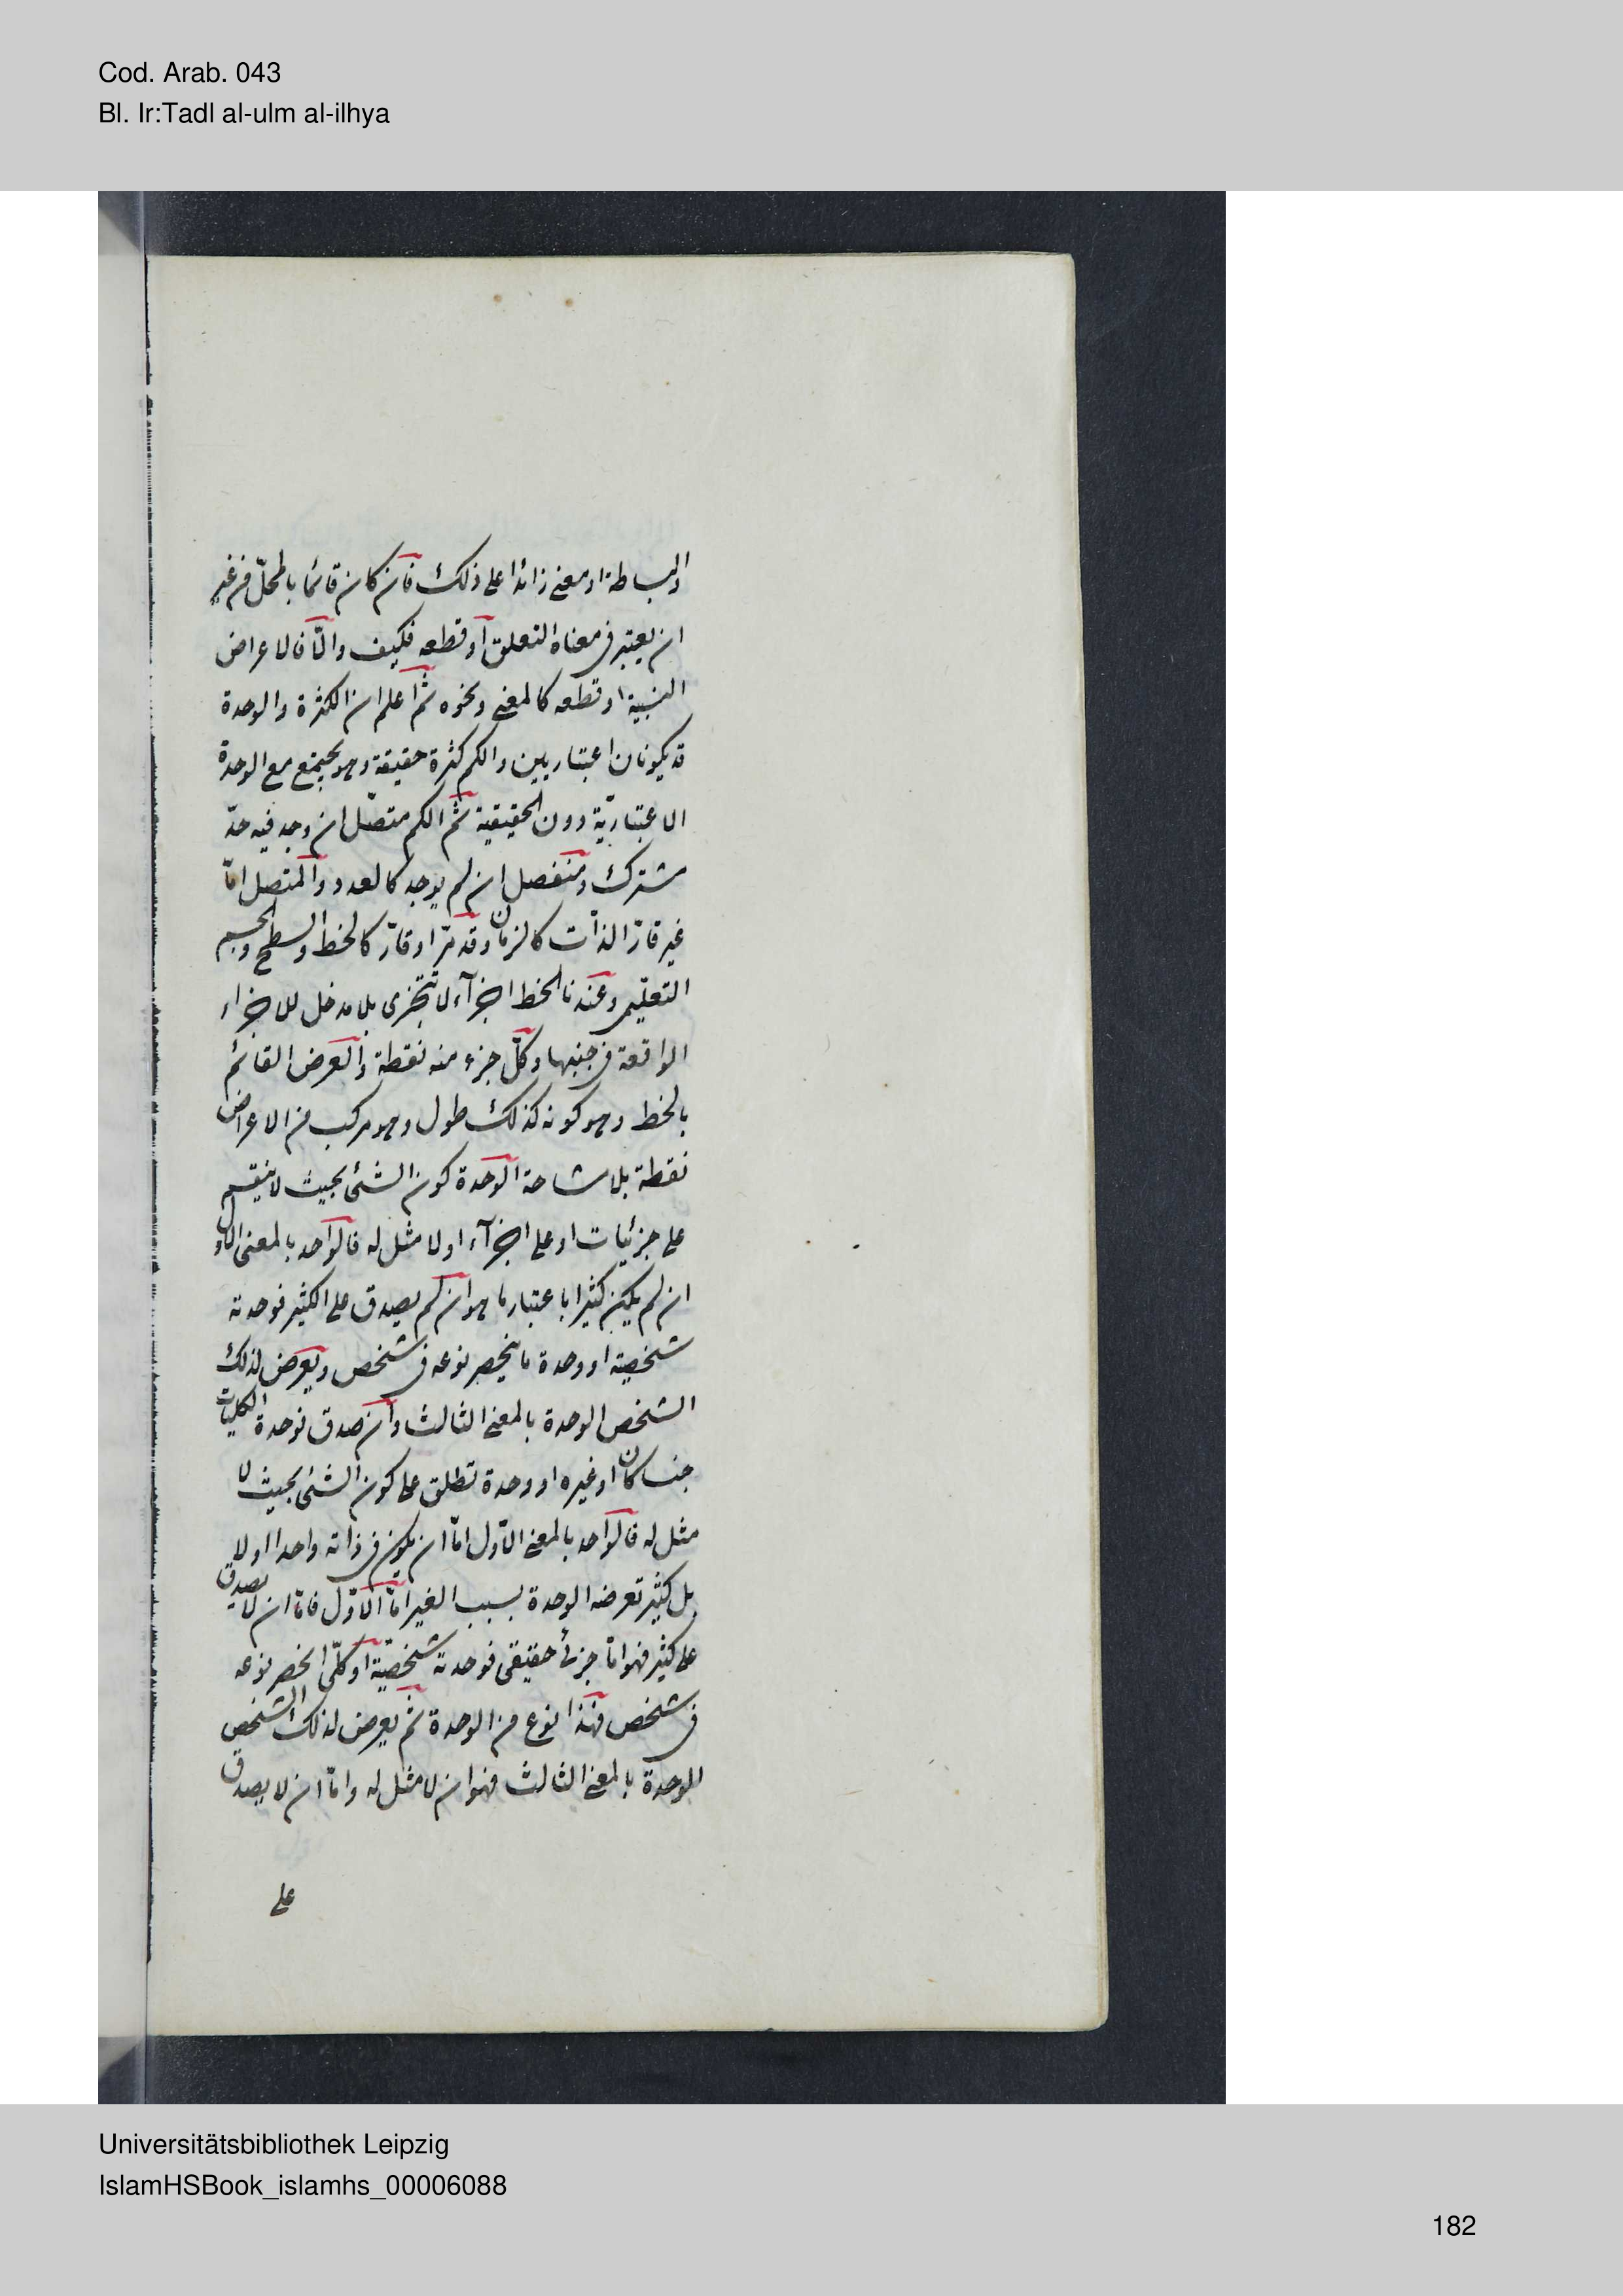 Cod. Arab. 043
Bl. Ir:Tadl al-ulm al-ilhya
والبساطة او معنى زائدا على ذلك فان كان قائما بالمحلّ من غير
ان يعتبر فى معناه التعلق او قطعه فكيف والّا فالاعراض
النسبية او قطعه كالمعنى ونحوه ثم اعلم ان الكثرة والوحدة
قد يكونان اعتباريين والكم كثرة حقيقة وهو يجتمع مع الوحدة
الاعتباريّة دون الحقيقية ثم الكم متصّل ان وجد فيه حدّ
مشترك ومنفصل ان لم يوجد كالعدد والمتصل امّا
غير قارّ الذات كالزمان وقد مرّ او قارّ كالخط والسطح والجسم
التعليمى وعندنا الخط اجزآء لا تتجزى بلا مدخل للاجزاء
الواقعة فى جنبها وكلّ جزء منه نقطة والعرض القائم
بالخط وهو كونه كذلك طول وهو مركب من الاعراض
نقطة بلا مشاحة الوحدة كون الشئ بحيث لا ينقسم
على جزئيات او على اجزآء او لا مثل له فالواحد بالمعنى الاول
ان لم يكن كثيرا باعتبار ما هو ان لم يصدق على الكثير فوحدته
شخصية او وحدة ما ينحصر نوعه فى شخص ويعرض لذلك
الشخص الوحدة بالمعنى الثالث وان صدق فوحدة الكليات
جنسا كان او غيره او وحدة تطلق على كون الشئ بحيث لا
مثل له فالواحد بالمعنى الاوّل امّا ان يكون فى ذاته واحدا او لا
بل كثير تعرضه الوحدة بسبب الغير امّا الاوّل فامّا ان لا يصدق
على كثير فهو امّا جزئ حقيقى فوحدته شخصيّة او كلّى انحصر نوعه
فى شخص فهذا نوع من الوحدة ثم يعرض لذلك الشخص
الوحدة بالمعنى الثالث فهو ان لا مثل له وامّا ان لا يصدق
على
Universitätsbibliothek Leipzig
IslamHSBook_islamhs_00006088
182